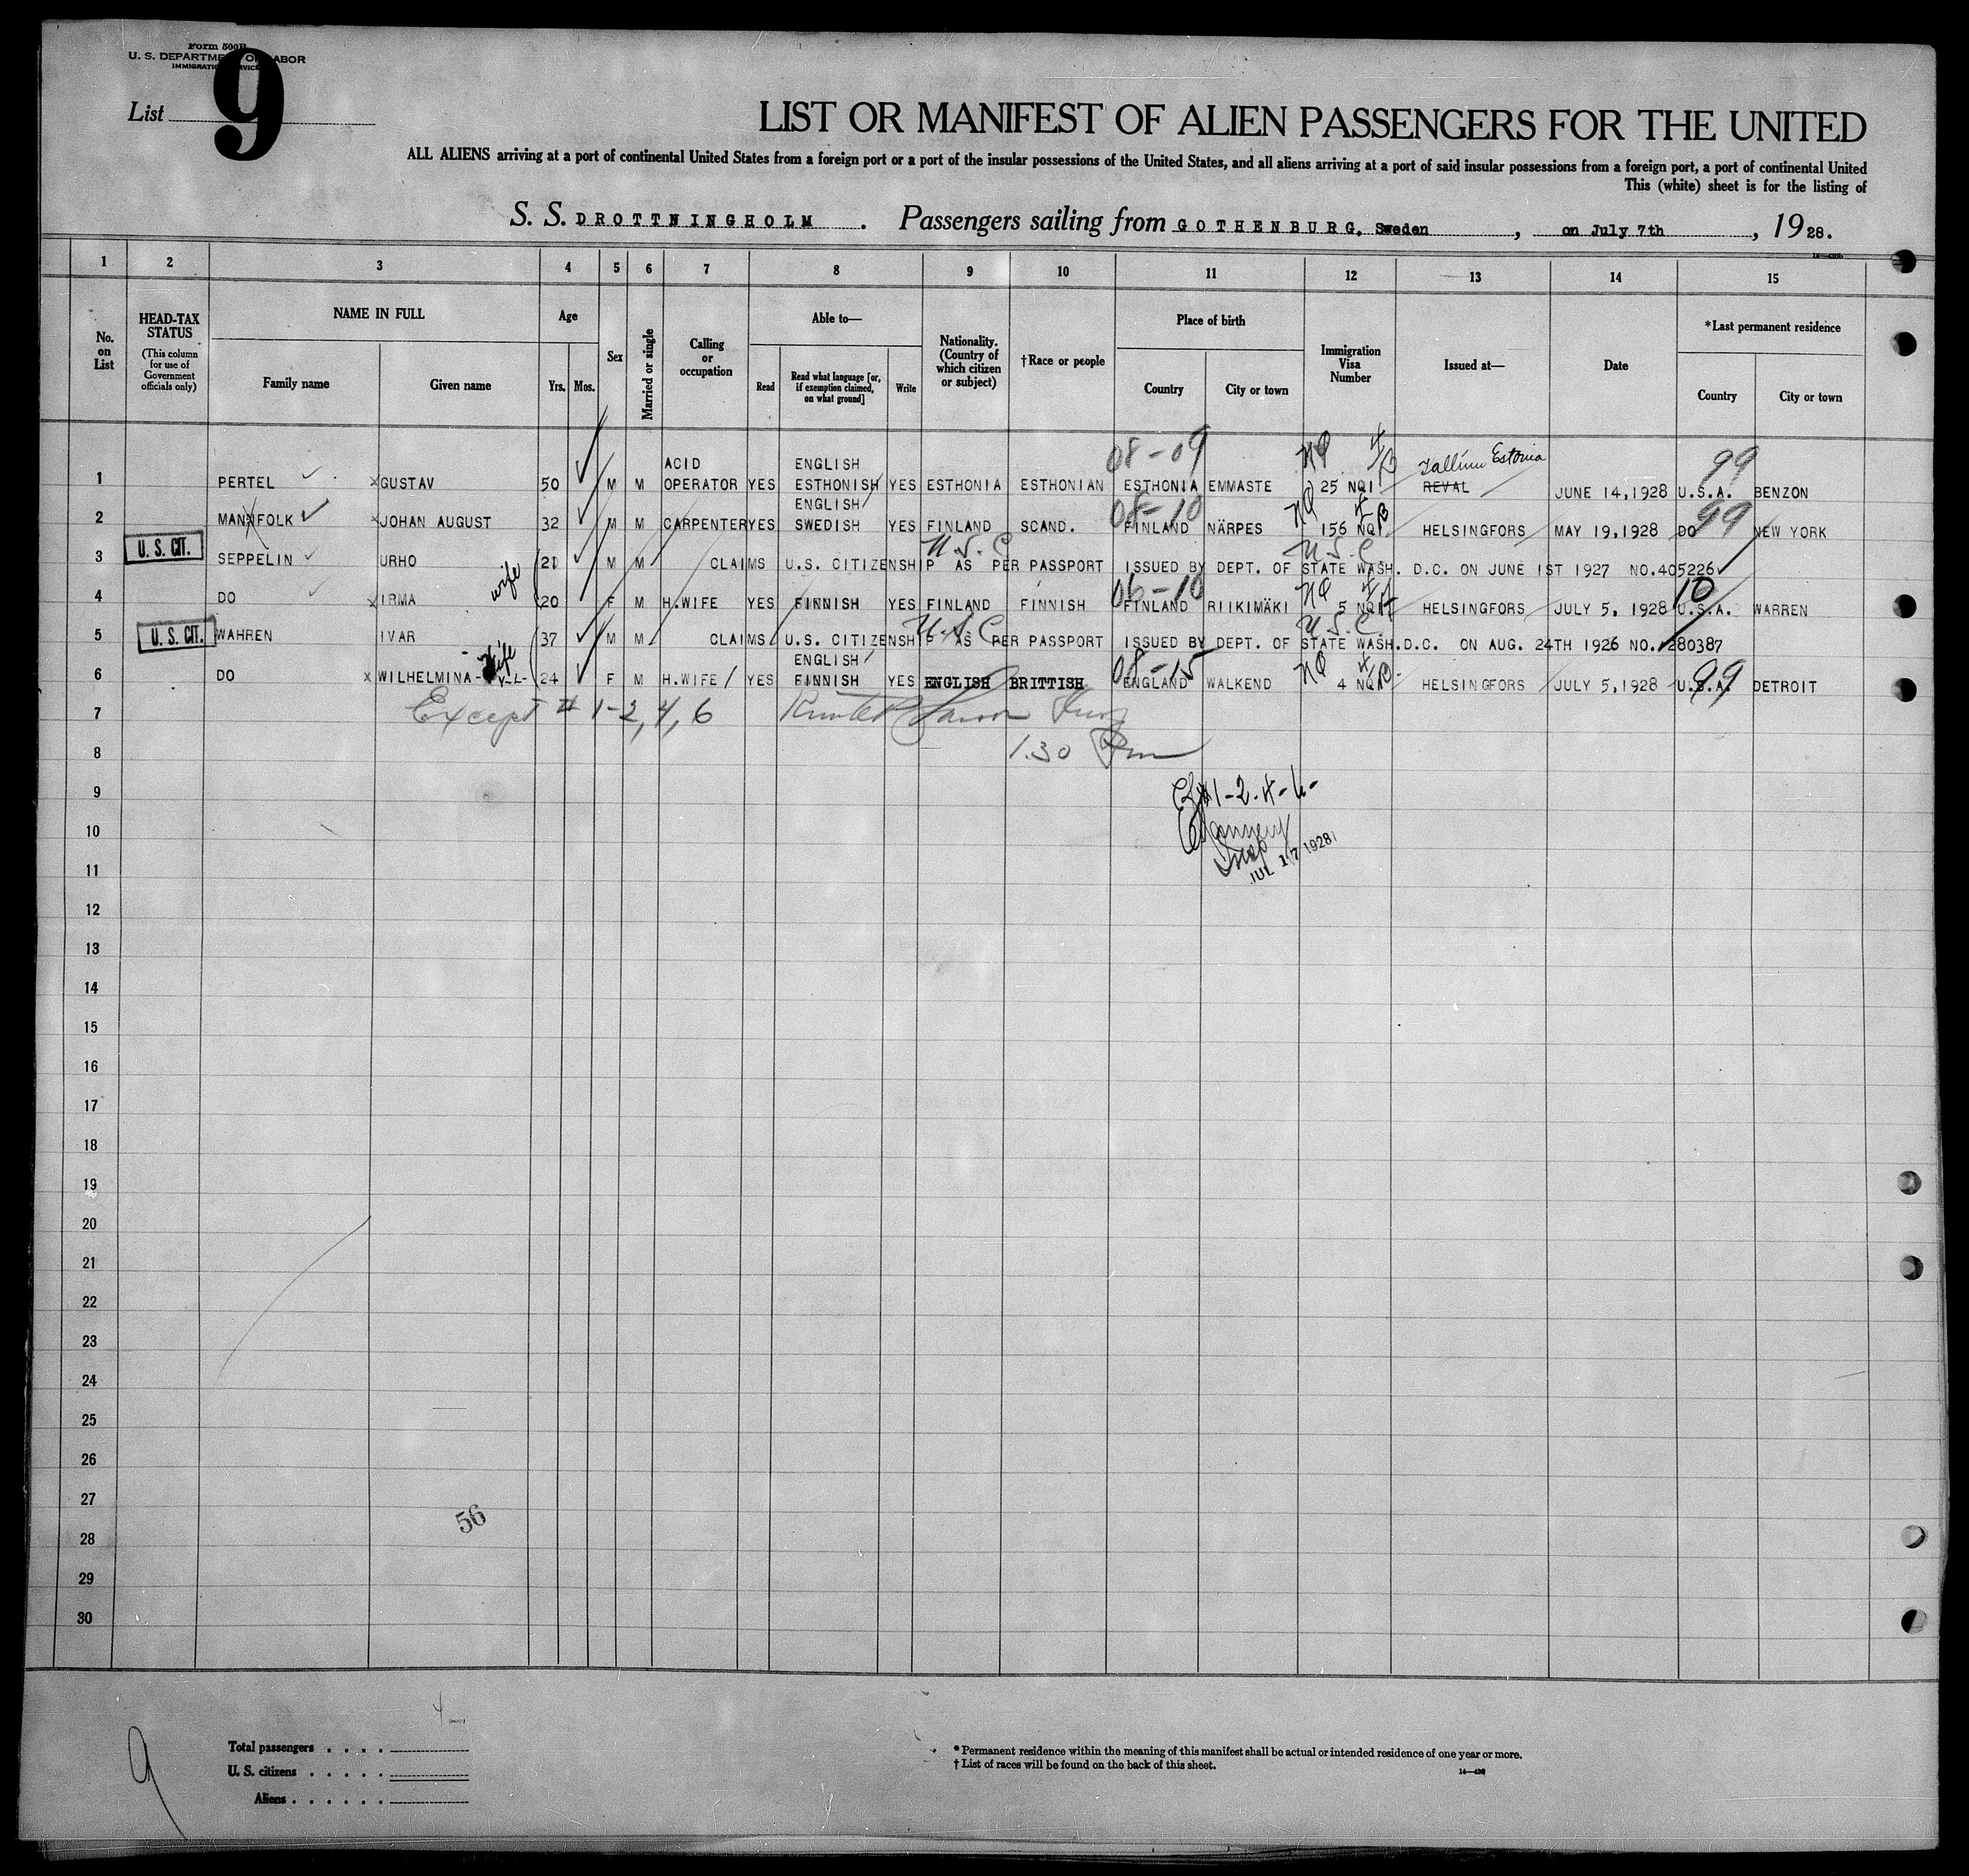 Form 500B
U. S. DEPARTMENT OF LABOR
IMMIGRATION SERVICE
List 9
LIST OR MANIFEST OF ALIEN PASSENGERS FOR THE UNITED
ALL ALIENS arriving at a port of continental United States from a foreign port or a port of the insular possessions of the United States, and all aliens arriving at a port of said insular possessions from a foreign port, a port of continental United
This (white) sheet is for the listing of
S. S. DROTTNINGHOLM . Passengers sailing from GOTHENBURG, Sweden , on July 7th , 1928.
1 2 3 4 5 6 7 8 9 10 11 12 13 14 15
No. on List
HEAD-TAX STATUS
(This column for use of Government officials only)
NAME IN FULL
Family name Given name
Age
Yrs. Mos.
Sex
Married or single
Calling or occupation
Able to—
Read Read what language [or, if exemption claimed, on what ground] Write
Nationality. (Country of which citizen or subject)
†Race or people
Place of birth
Country City or town
Immigration Visa Number
Issued at—
Date
*Last permanent residence
Country City or town
08-09 NQ 4/B Tallinn Estonia 99
ACID ENGLISH
1 PERTEL x GUSTAV 50 M M OPERATOR YES ESTHONISH YES ESTHONIA ESTHONIAN ESTHONIA EMMASTE 25 NQI REVAL JUNE 14,1928 U.S.A. BENZON
ENGLISH/ 08-10 NQ 99
2 MANNFOLK x JOHAN AUGUST 32 M M CARPENTER YES SWEDISH YES FINLAND SCAND. FINLAND NÄRPES 156 NQI HELSINGFORS MAY 19,1928 DO NEW YORK
U. S. CIT. U.S.C U.S.C
3 SEPPELIN URHO 21 M M CLAIMS U.S. CITIZENSHIP AS PER PASSPORT ISSUED BY DEPT. OF STATE WASH. D.C. ON JUNE 1ST 1927 NO.405226
wife 06-10 NQ 10
4 DO x IRMA 20 F M H.WIFE YES FINNISH YES FINLAND FINNISH FINLAND RIIKIMÄKI 5 NQI HELSINGFORS JULY 5, 1928 U.S.A. WARREN
U. S. CIT. U.S.C U.S.C.
5 WAHREN IVAR 37 M M CLAIMS U.S. CITIZENSHIP AS PER PASSPORT ISSUED BY DEPT. OF STATE WASH.D.C. ON AUG. 24TH 1926 NO. 280387
wife ENGLISH/ 08-15 NQ 99
6 DO x WILHELMINA 24 F M H.WIFE YES FINNISH YES ENGLISH BRITTISH ENGLAND WALKEND 4 NQI HELSINGFORS JULY 5,1928 U.S.A. DETROIT
7 Except # 1-2, 4, 6
8 1.30 Pm
9 1-2-4-6-
10
11 JUL 17 1928
12
13
14
15
16
17
18
19
20
21
22
23
24
25
26
27
56
28
29
30
9
Total passengers . . . .
U. S. citizens . . . . .
Aliens . . . . . .
* Permanent residence within the meaning of this manifest shall be actual or intended residence of one year or more.
† List of races will be found on the back of this sheet.
14—430